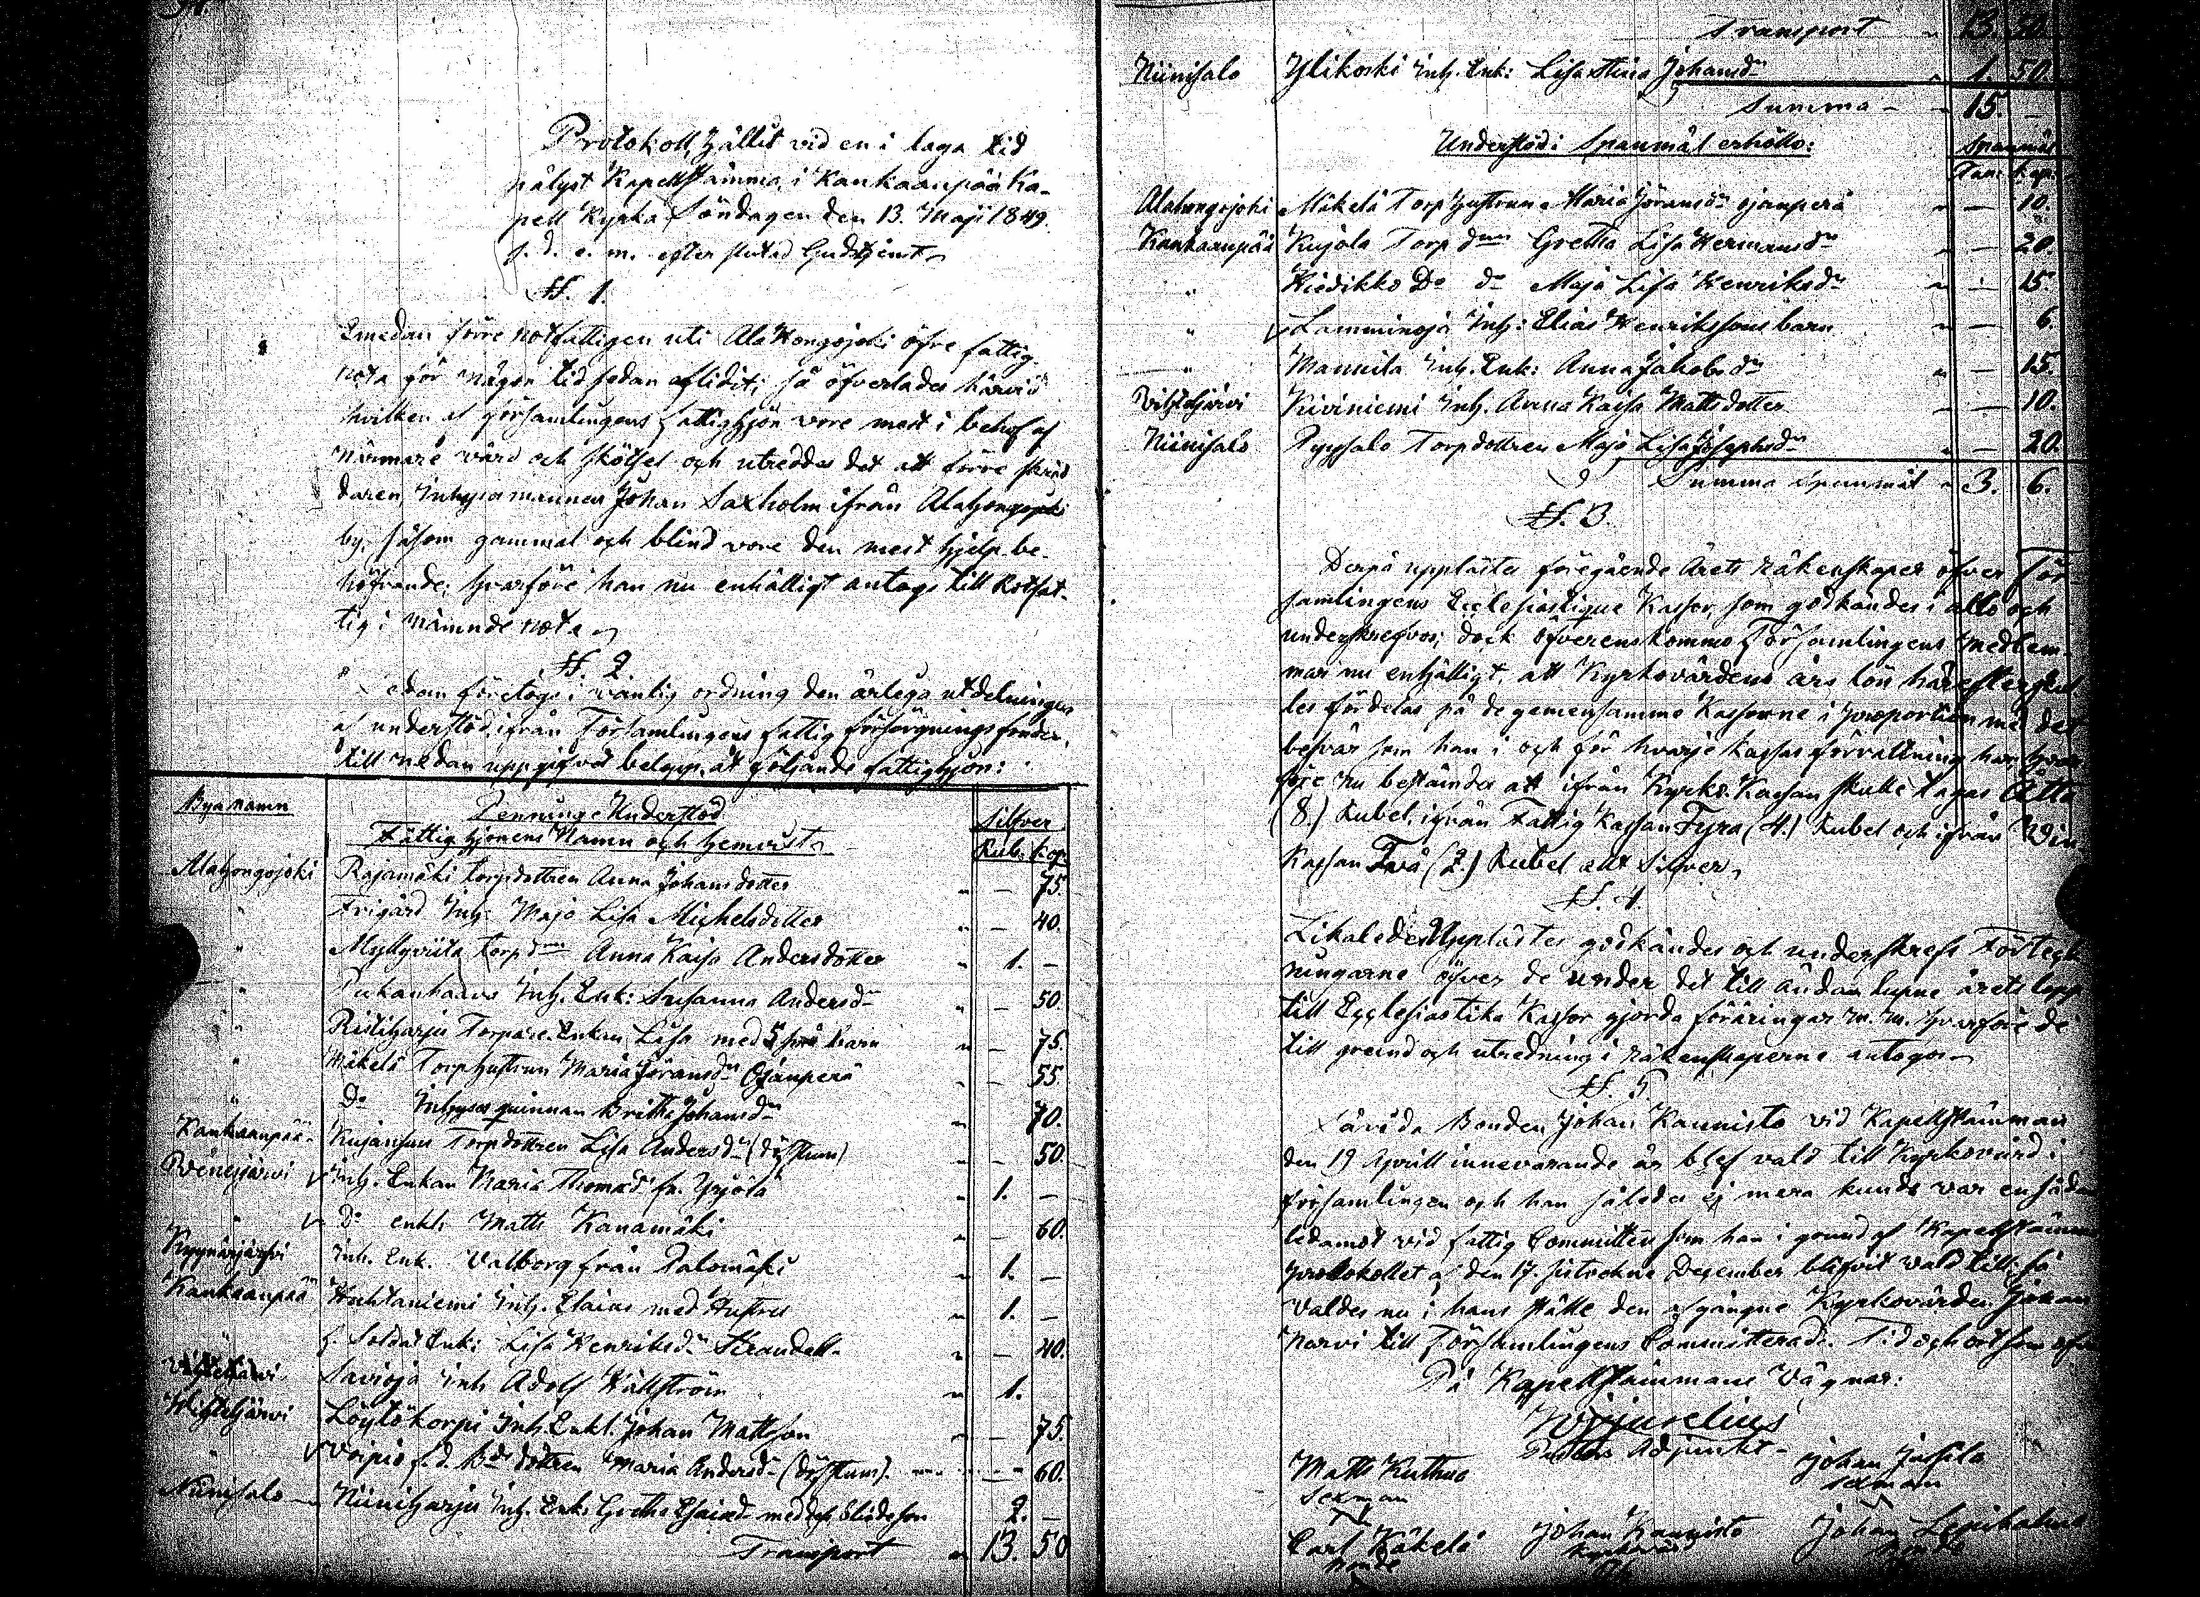 Protokoll, hållit vid en i laga tid
pålyst Kapellstämma, i Kankaanpää Ka-
pell Kyrka Söndagen den 13. Maji 1849.
s. d. e. m. efter slutad Gudstjenst
§. 1.
Emedan förre rotfattigen uti AlaHongojoki öfre fattig-
rota för någon tid sedan aflidit; så öfverlades härvid
hvilken af församlingens fattighjon vore mest i behof af
närmare vård och skötsel och utreddes det att förre skräd
daren Inhysesmannen Johan Saxholm ifrån Alahongojoki
by, såsom gammal och blind vore den mest hjelp be-
höfvande; hvarföre han nu enhälligt antogs till Rotfat-
tig i nämnde rota
§. 2.
Sedan företogs i vanlig ordning den årliga utdelningen
af understöd ifrån Församlingens fattig försörgningsfonder,
till nedan uppgifvet belopp, åt följande fattighjon:
Byanamn Penninge Understöd Silfver
Fattighjonens Namn och hemvist Rub. Kop.
Alahongojoki Rajamäki torpdottren Anna Johansdotter " — 75.
" Frigård Inh: Maja Lisa Michelsdotter " — 40.
" Myllyviita torpd Anna Kaisa Andersdotter " 1. —
" Inh. Enk: Susanna Andersd " — 50.
" Ristiharju Torpare Enkan Lisa med 5 små barn " — 75.
" Mäkelä Torphustrun Maria Göransd Ojanperä " — 55
" D Inhyses quinnan Britha Johansd " — 70.
Kankaanpää Kujansuu Torpdottren Lisa Andersd (döfstum) " — 50.
Venesjärvi Inh. Enkan Maria Thomasd fr. Yrjölä " 1. —
" D enkl. Matts Kanamäki " — 60.
Kyynärjärvi Inh. Enk. Valborg från Palomäki " 1. —
Kankaanpää Huhtaniemi Inh. Elaias med Hustru " 1. —
" Soldat Enk: Lisa Henriksd Strandell " — 40.
Savioja Inh Adolf Hällström " 1.
Löytökorpi Inh. Enkl. Johan Mattsson " — 75.
Voipio f.d. B dottren Maria Andersd (döfstum) " — 60.
Niinisalo Niiniharju Inh. Enk: Gretha Esaiad med dess 2. —
Transport " 13. 50
Transport " 13. 50.
Niinisalo Ylikoski Inh. Enk: Lisa Stina Johansd " 1. 50.
Summa " 15. —
Understöd i Spanmål erhöllo: Spanmål
Tun: Kap:
Alahongojoki Mäkelä Torphustrun Maria Göransd Ojanperä " — 10.
Kankaanpää Kujala Torp d Gretha Lisa Hermansd " — 20.
" Kiedikko D d Maja Lisa Henriksd " — 15.
" Lamminoja Inh: Elias Henrikssons barn " — 6.
" Mannila Inh. Enk: Anna Jakobsd " — 15.
Vihteljärvi Kiviniemi Inh. Anna Kaisa Mattsdotter " — 10.
Niinisalo Pyysalo Torpdottren Maja Lisa Josephsd " — 20.
Summa Spanmål " 3. 6.
§. 3.
Derpå upplästes föregående Årets räkenskaper öfver För-
samlingens Ecclesiastique Kassor, som godkändes i allo och
underskrefvos; dock öfverenskommo Församlingens medlem-
mar nu enhälligt, att Kyrkovärdens års lön härefter skul
les fördelas på de gemensamme Kassorne i proportion med det
besvär som han i och för hvarje Kassas förvaltning har; hvar-
före nu bestämdes att ifrån Kyrko Kassan skulle tagas Åtta
(8.) Rubel, ifrån Fattig Kassan Fyra (4.) Rubel och ifrån Vin
Kassan Två (2.) Rubel allt Silfver
§. 4.
Likaledes Upplästes godkändes och underskrefs Förteck
ningarne öfver de under det till ändan lupne årets lopp
till Ecclesiastika Kassor gjorda föräringar m. m. hvarföre de
till grund och utredning i räkenskaperne antogos
§. 5
Såvida Bonden Johan Kannisto vid Kapellstämman
den 19 Aprill innevarande år blef vald till Kyrkovärd i
församlingen och han således ej mera kunde var en sådan
ledamot vid fattig Committen som han i grund af Kapellstämmo
protokollet af den 17. sistledne December blifvit vald till; så
valdes nu i hans ställe den afgångne Kyrkovärden Johan
Narvi till Församlingens Committerade. Tid och ort som ofvan
På Kapellstämmans Vägnar:
Pastors Adjunkt
Matts Kuthuo Johan Jussila
Sexman sexman
Carl Käkelä Johan Kannisto Johan
Bonde Kyrkvärd Bonde